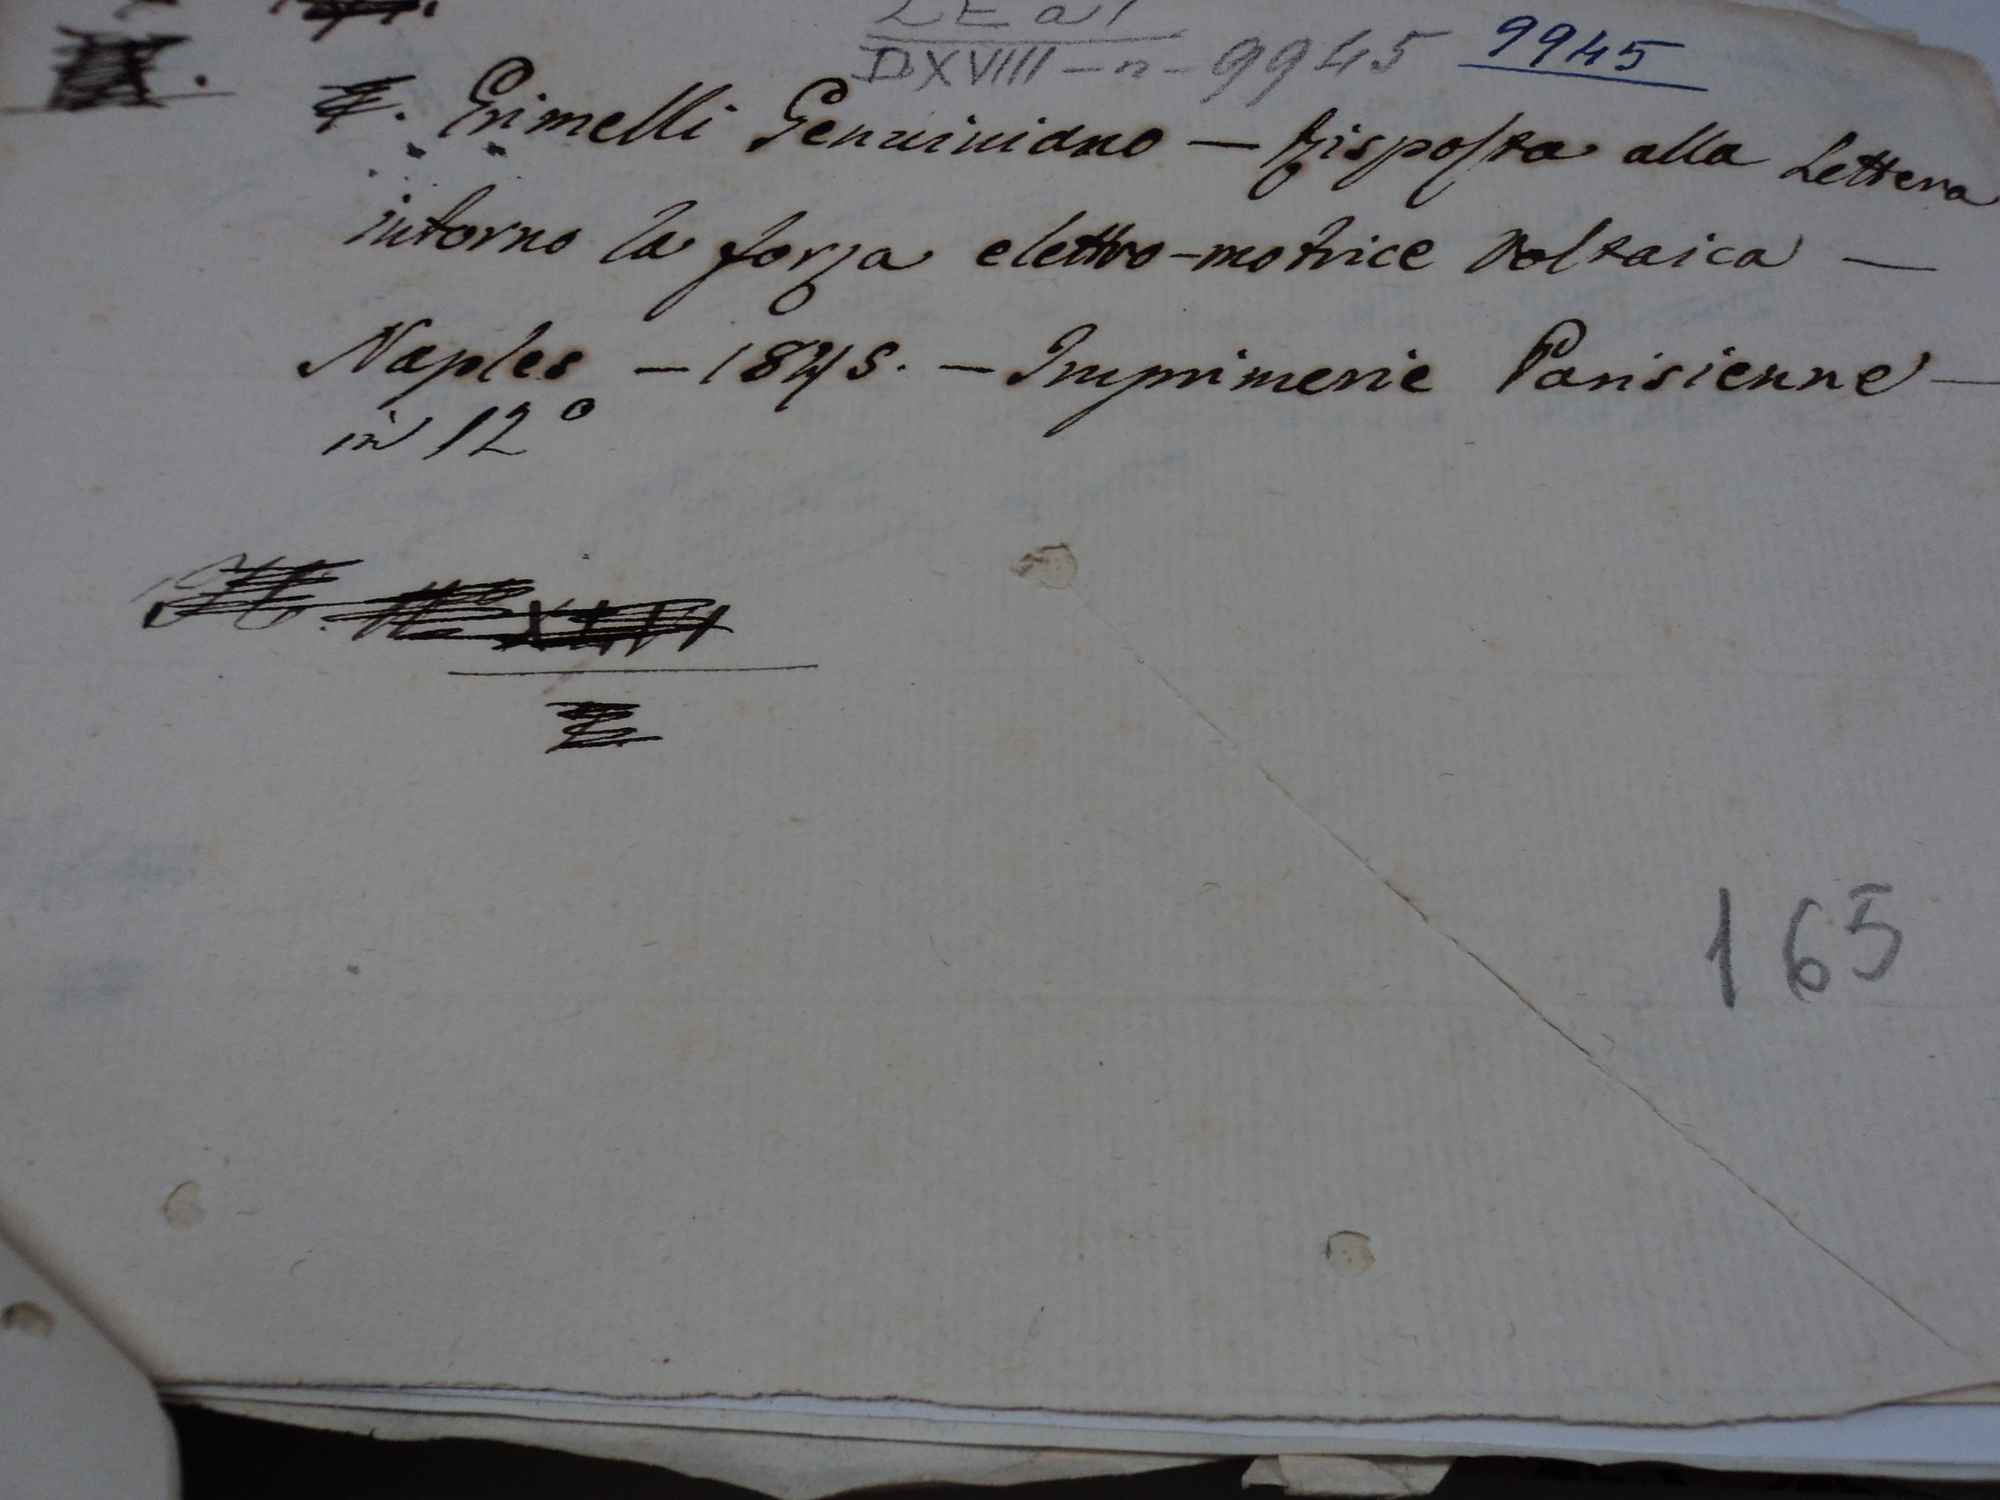 DXVIII - n - 9945 9945
Grimelli Geminiano — Risposta alla Lettera
intorno la forza elettro-motrice Voltaica —
Naples — 1845. — Imprimerie Parisienne —
in 12°
165